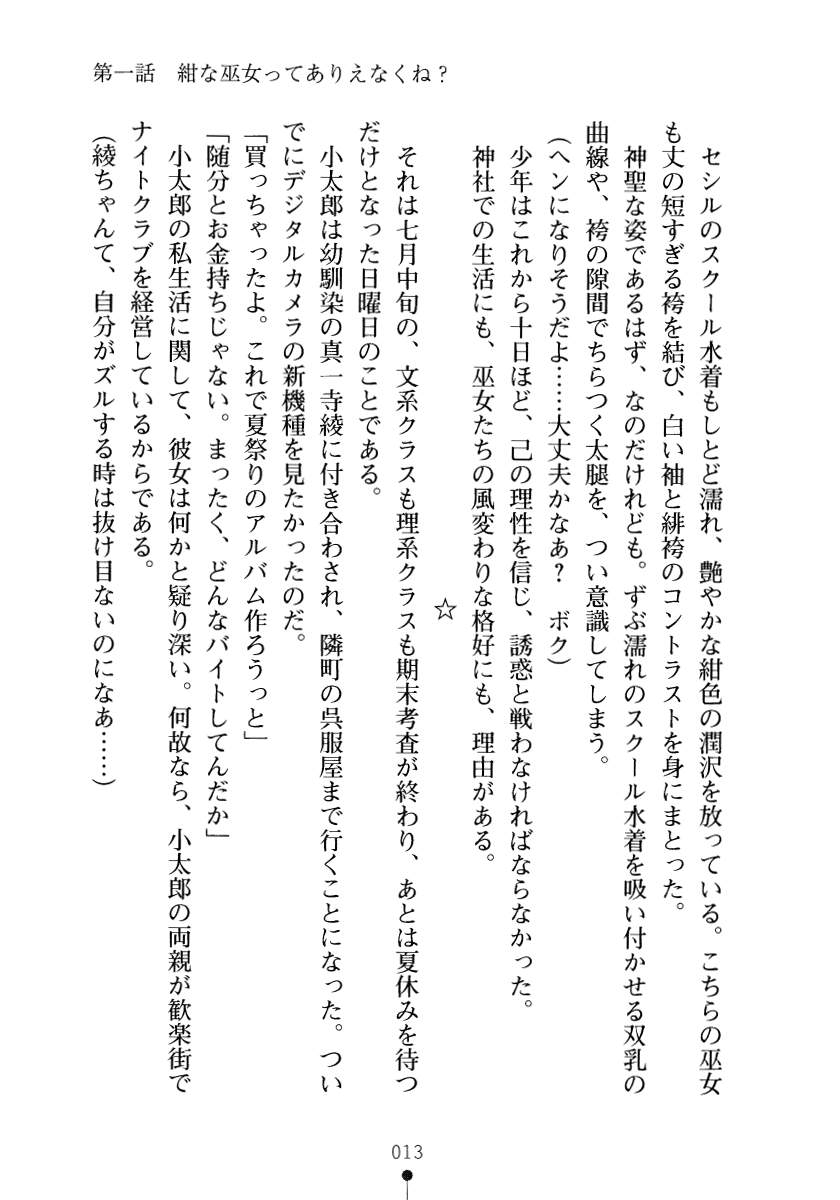 第一話　紺な巫女ってありえなくね？
セシルのスクール水着もしとど濡れ、艶やかな紺色の潤沢を放っている。こちらの巫女
も丈の短すぎる袴を結び、白い袖と緋袴のコントラストを身にまとった。
神聖な姿であるはず、なのだけれども。ずぶ濡れのスクール水着を吸い付かせる双乳の
曲線や、袴の隙間でちらつく太腿を、つい意識してしまう。
（ヘンになりそうだよ……大丈夫かなあ？　ボク）
少年はこれから十日ほど、己の理性を信じ、誘惑と戦わなければならなかった。
神社での生活にも、巫女たちの風変わりな格好にも、理由がある。
☆
それは七月中旬の、文系クラスも理系クラスも期末考査が終わり、あとは夏休みを待つ
だけとなった日曜日のことである。
小太郎は幼馴染の真一寺綾に付き合わされ、隣町の呉服屋まで行くことになった。つい
でにデジタルカメラの新機種を見たかったのだ。
「買っちゃったよ。これで夏祭りのアルバム作ろうっと」
「随分とお金持ちじゃない。まったく、どんなバイトしてんだか」
小太郎の私生活に関して、彼女は何かと疑り深い。何故なら、小太郎の両親が歓楽街で
ナイトクラブを経営しているからである。
（綾ちゃんて、自分がズルする時は抜け目ないのになあ……）
013